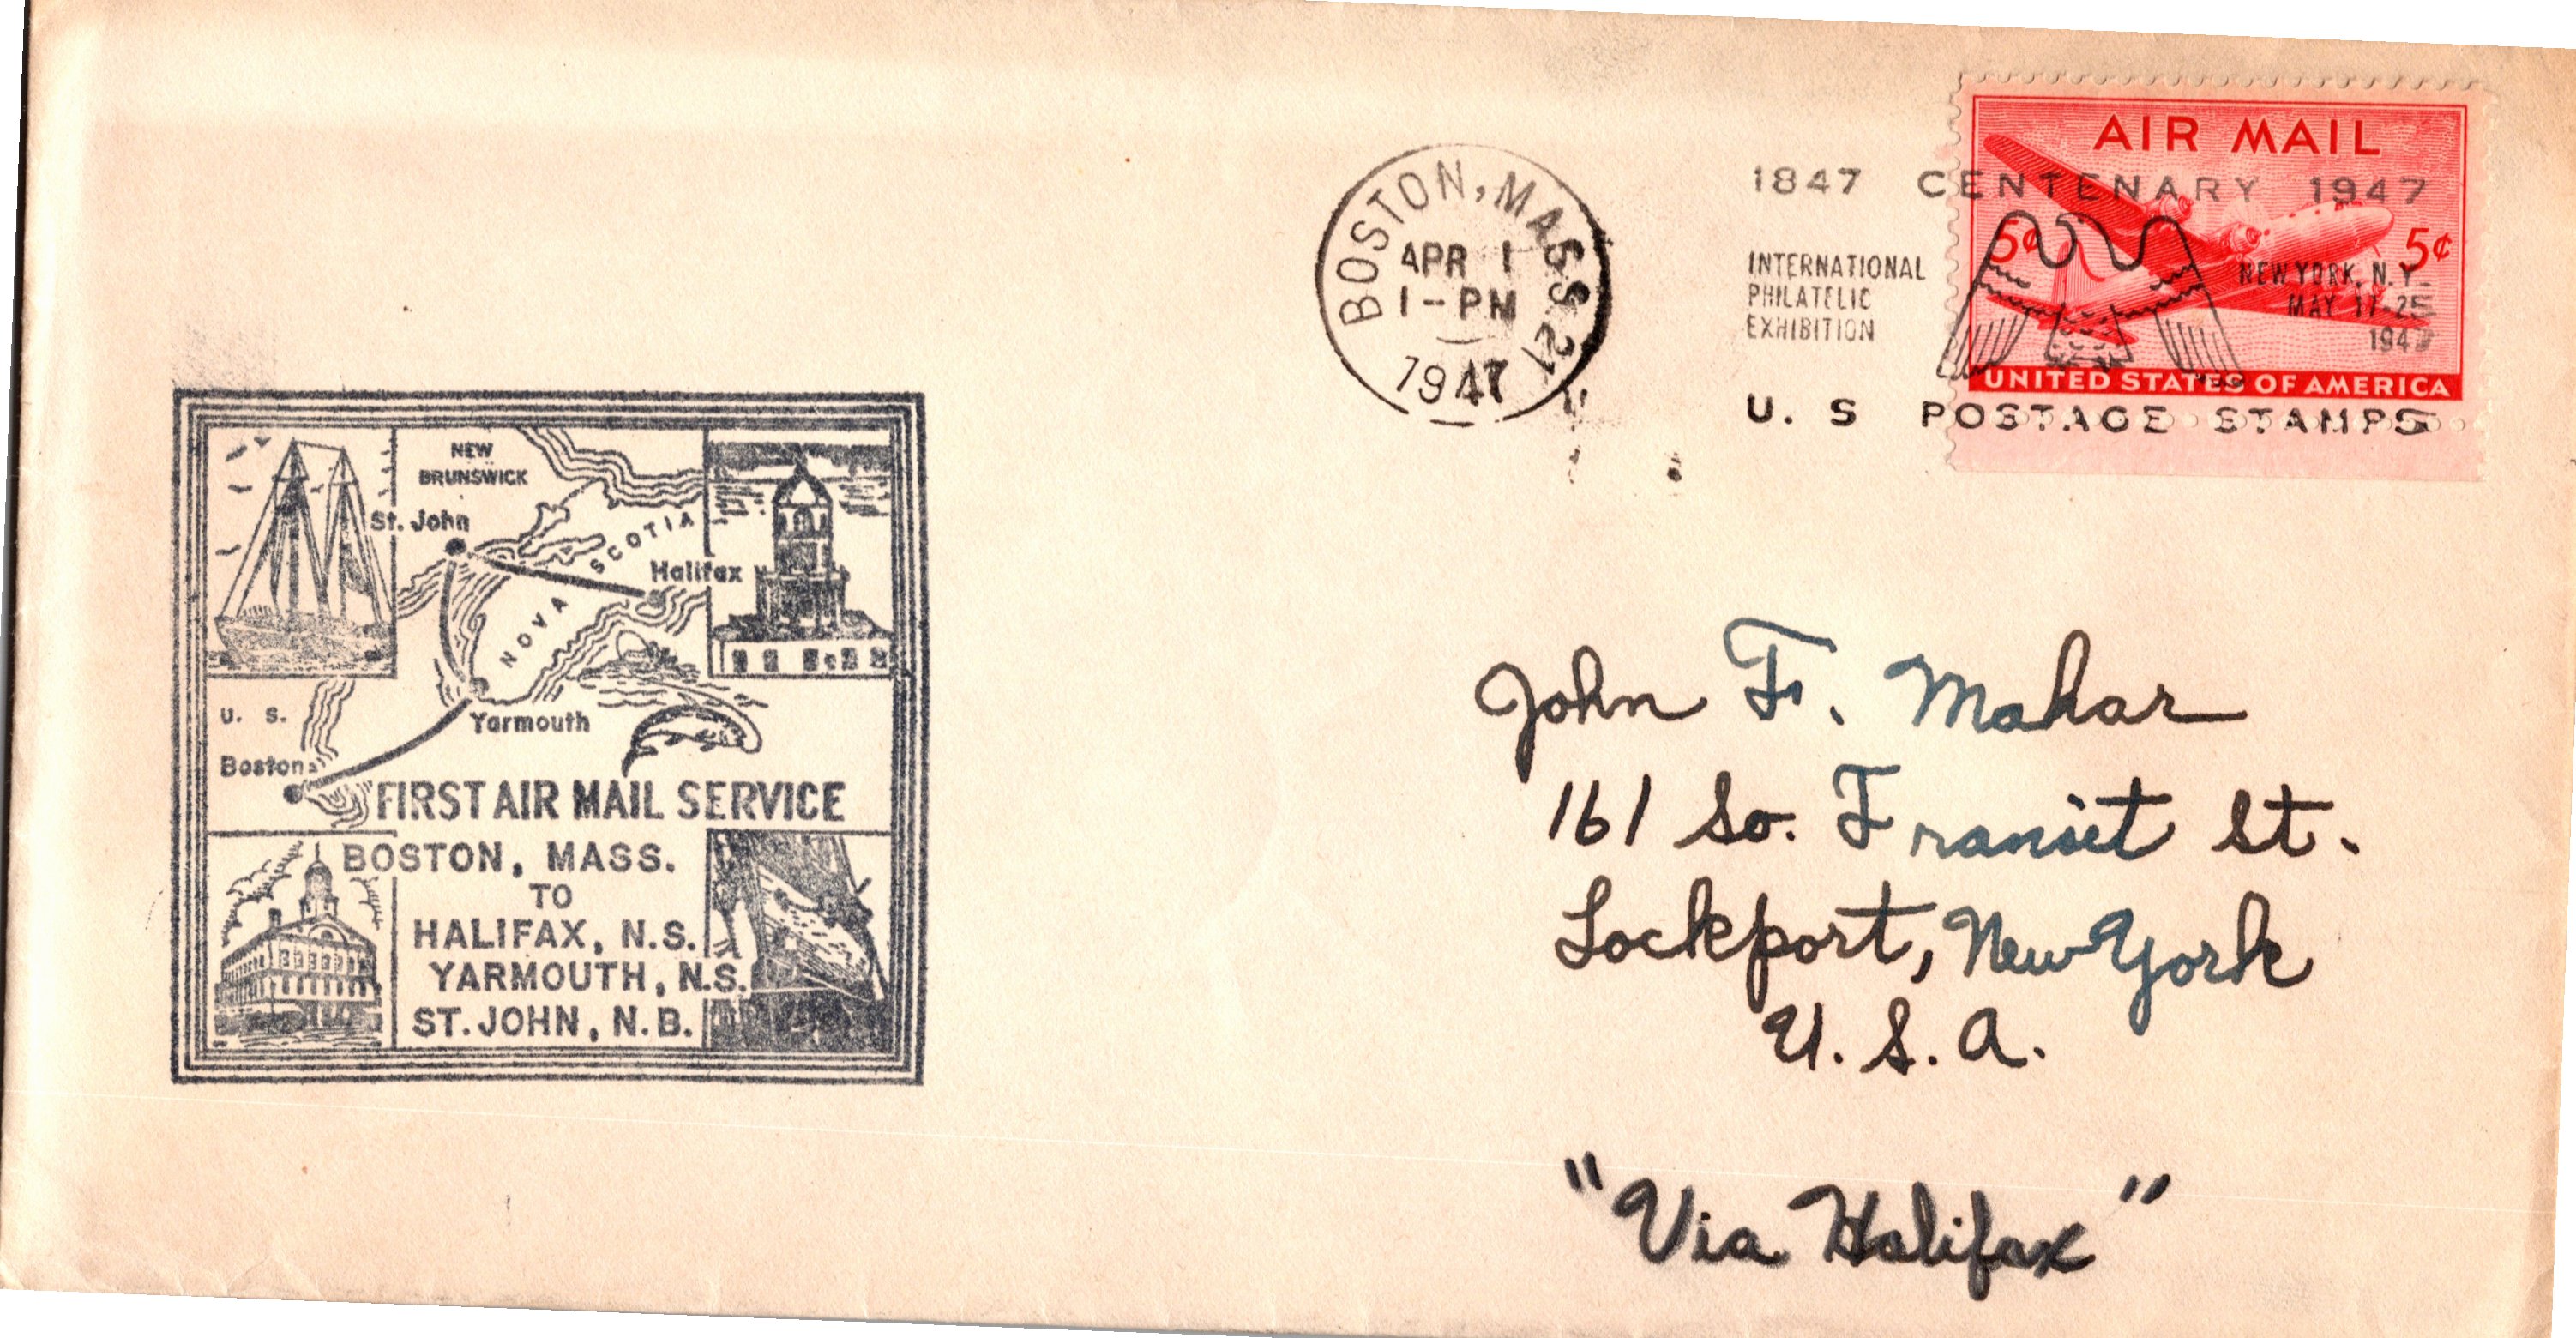 AIR MAIL
5¢ 5¢
UNITED STATES OF AMERICA
BOSTON, MASS 21
APR 1
1-PM
1947
1847 CENTENARY 1947
INTERNATIONAL
PHILATELIC
EXHIBITION
NEW YORK, N.Y.
MAY 17-25
1947
U. S POSTAGE STAMPS
NEW
BRUNSWICK
St. John
NOVA SCOTIA
Halifax
U. S.
Yarmouth
Boston
FIRST AIR MAIL SERVICE
BOSTON, MASS.
TO
HALIFAX, N.S.
YARMOUTH, N.S.
ST. JOHN, N.B.
John F. Mahar
161 So. Transit St.
Lockport, New York
U. S. A.
"Via Halifax"